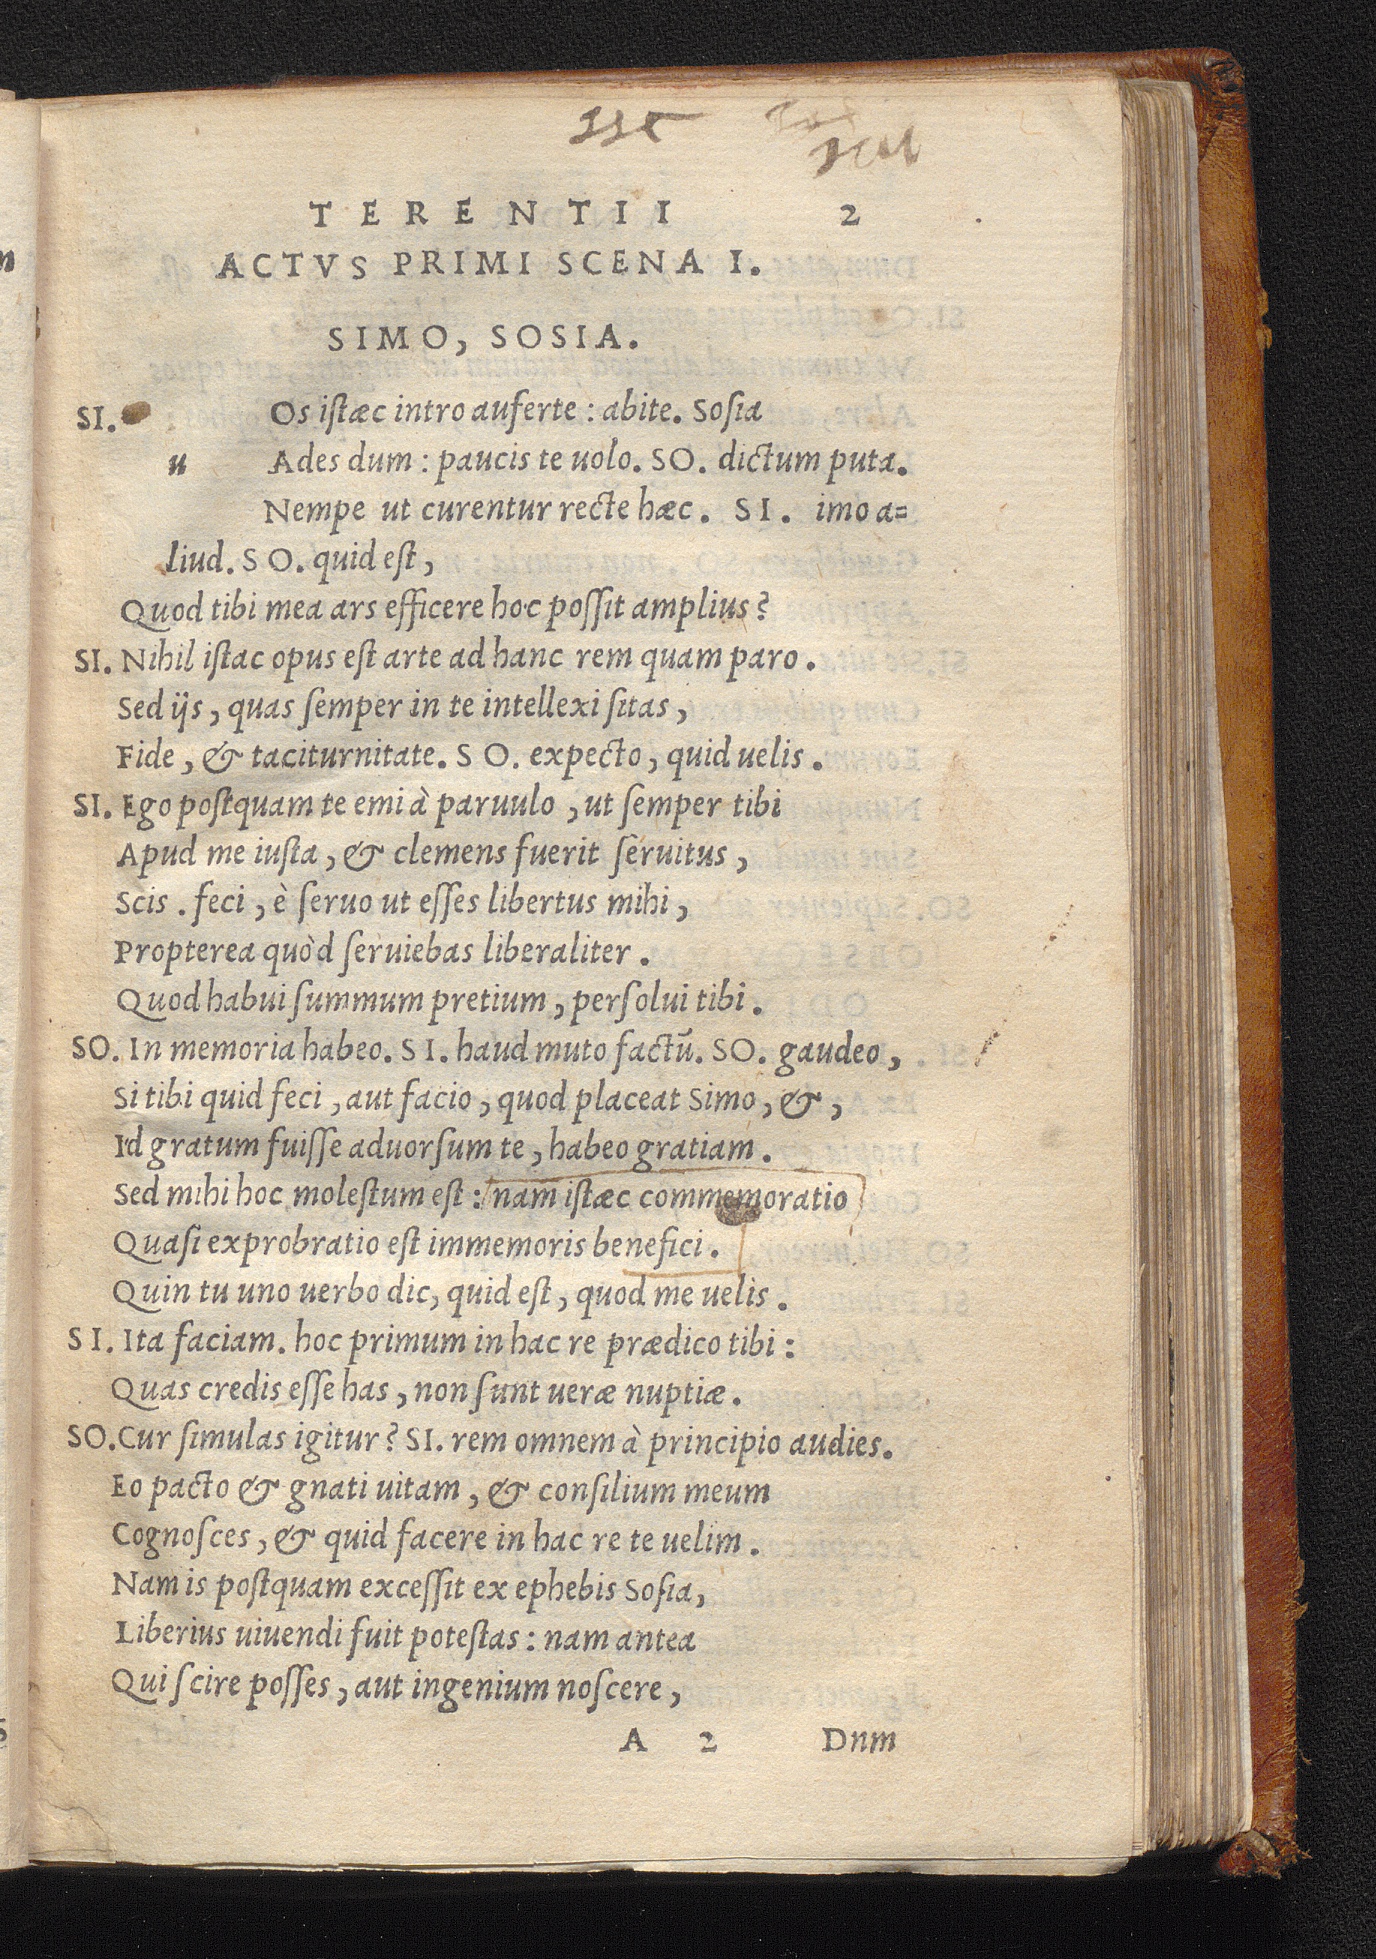 TERENTII 2
ACTVS PRIMI SCENA I.
SIMO, SOSIA.
SI. Os istæc intro auferte : abite. Sosia
u Ades dum : paucis te uolo. SO. dictum puta.
Nempe ut curentur recte hæc. SI. imo a=
liud. SO. quid est,
Quod tibi mea ars efficere hoc possit amplius?
SI. Nihil istac opus est arte ad hanc rem quam paro.
Sed ijs, quas semper in te intellexi sitas,
Fide, & taciturnitate. SO. expecto, quid uelis.
SI. Ego postquam te emi à paruulo, ut semper tibi
Apud me iusta, & clemens fuerit seruitus,
Scis. feci, è seruo ut esses libertus mihi,
Propterea quòd seruiebas liberaliter.
Quod habui summum pretium, persolui tibi.
SO. In memoria habeo. SI. haud muto factū. SO. gaudeo,
Si tibi quid feci, aut facio, quod placeat Simo, &,
Id gratum fuisse aduorsum te, habeo gratiam.
Sed mihi hoc molestum est : nam istæc commemoratio
Quasi exprobratio est immemoris benefici.
Quin tu uno uerbo dic, quid est, quod me uelis.
SI. Ita faciam. hoc primum in hac re prædico tibi :
Quas credis esse has, non sunt ueræ nuptiæ.
SO. Cur simulas igitur? SI. rem omnem à principio audies.
Eo pacto & gnati uitam, & consilium meum
Cognosces, & quid facere in hac re te uelim.
Nam is postquam excessit ex ephebis Sosia,
Liberius uiuendi fuit potestas : nam antea
Qui scire posses, aut ingenium noscere,
A 2 Dnm